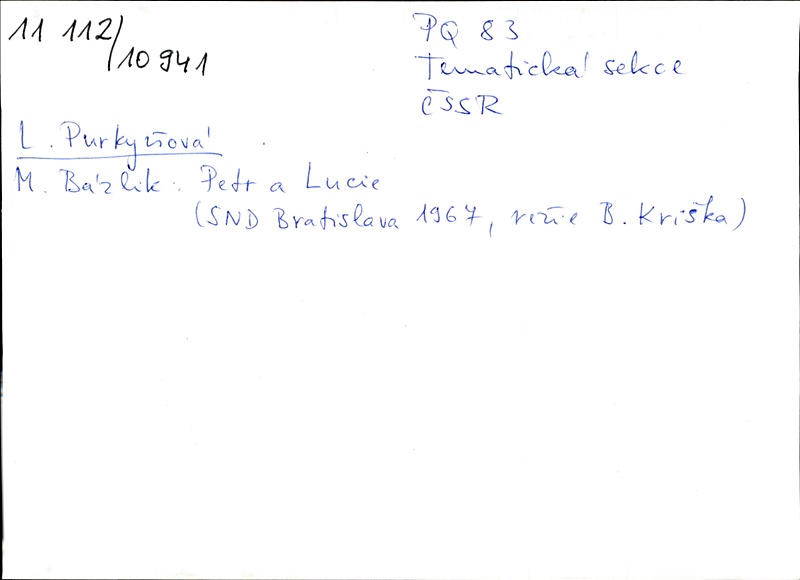 11 112/10 941
PQ 83
Tematická sekce
ČSSR
L. Purkyňová
M. Bázlik: Petr a Lucie
(SND Bratislava 1967, režie B. Kriška)